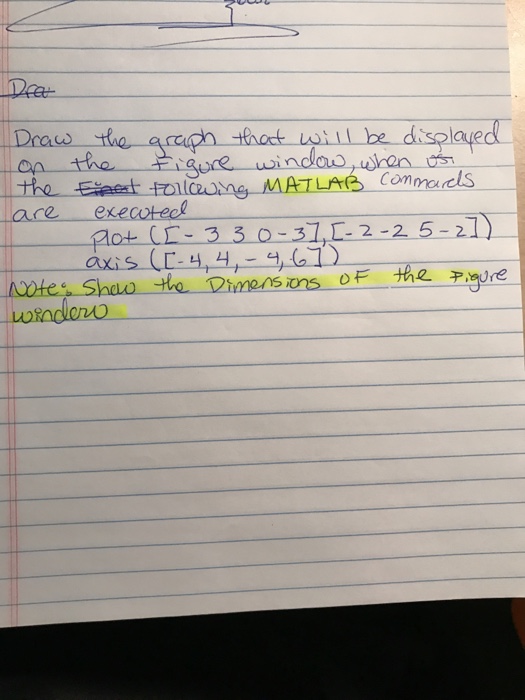 Draw the graph that will be displayed
on the Figure window, when
the following MATLAB Commands
are executed
plot ([-3 3 0 -3],[-2 -2 5 -2])
axis ([-4, 4, -4, 6])
Note: Show the Dimensions OF the Figure
window